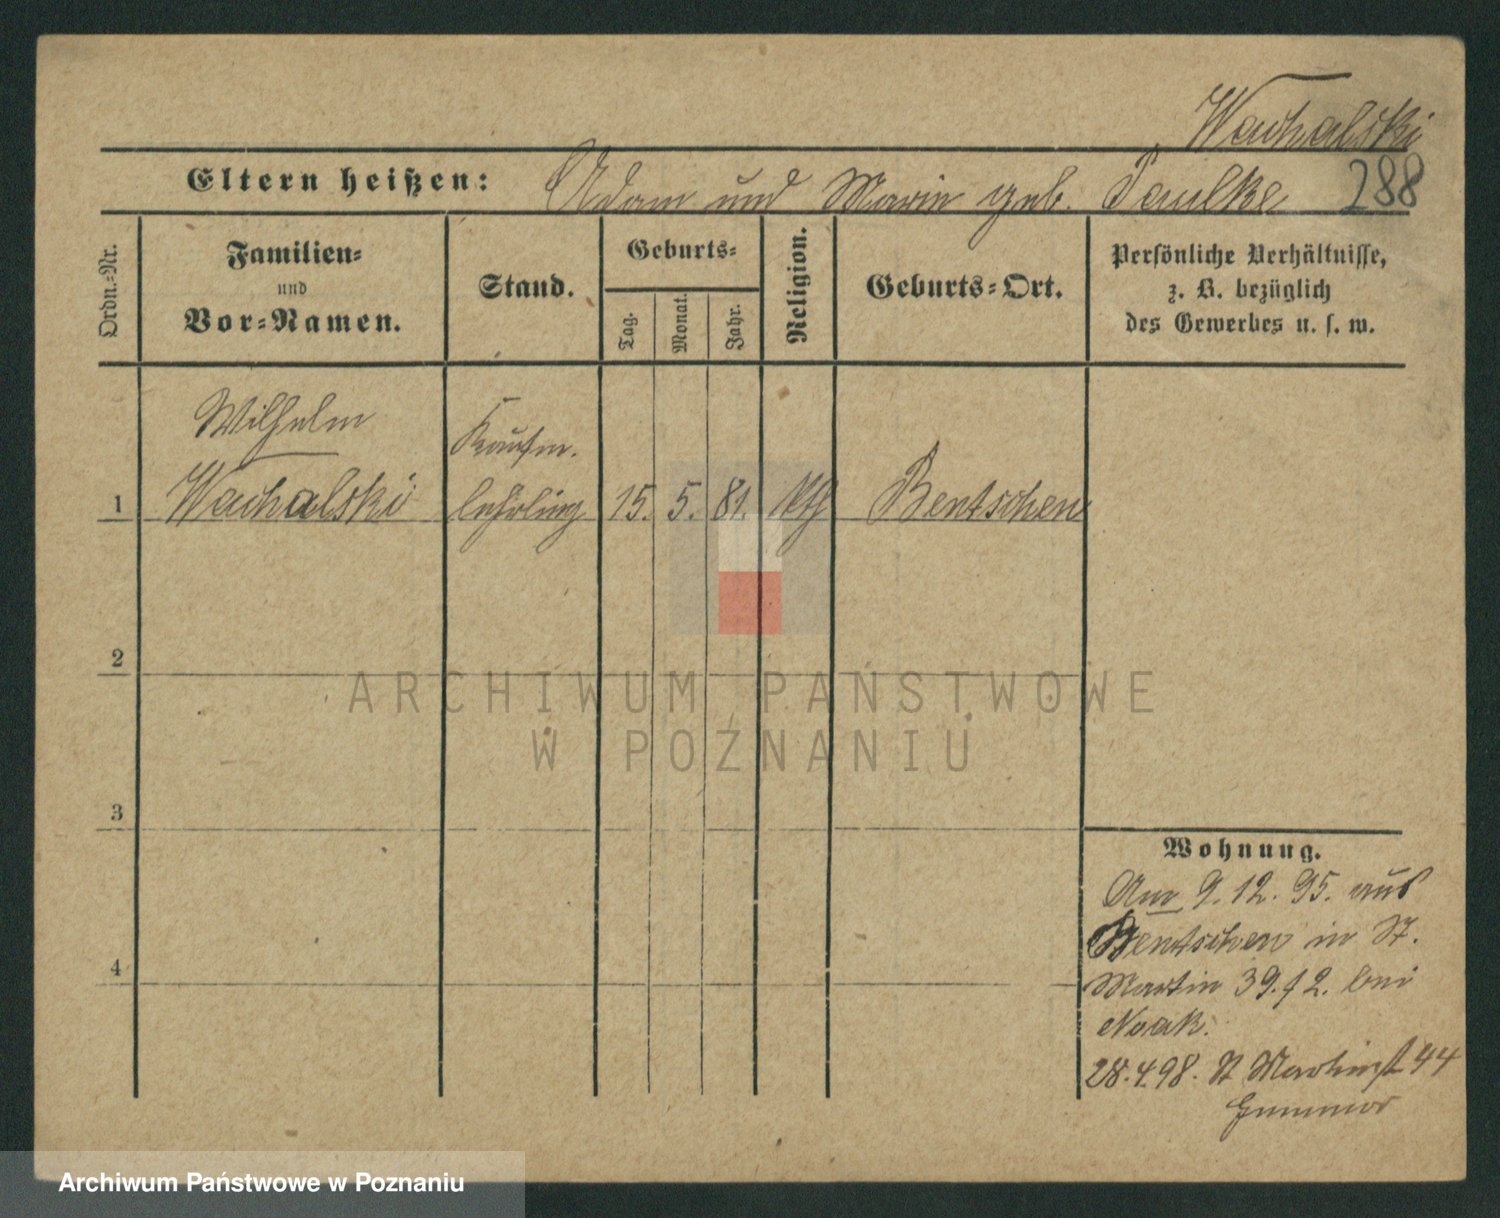 Wachalski
Eltern heißen: Adam und Marie geb. Paulke 288
Ordn.-Nr.
Familien-
und
Vor-Namen.
Stand.
Geburts-
Tag.
Monat.
Jahr.
Religion.
Geburts-Ort.
Persönliche Verhältnisse,
z. B. bezüglich
des Gewerbes u. s. w.
Wilhelm Kaufm.
1 Wachalski lehrling 15. 5. 81. kth Bentschen
2
3
4
Wohnung.
Am 9. 12. 95. aus
Bentschen in St.
Martin 39. f 2. bei
Noak.
28.4.98. St Martinst 44
ARCHIWUM PAŃSTWOWE
W POZNANIU
Archiwum Państwowe w Poznaniu